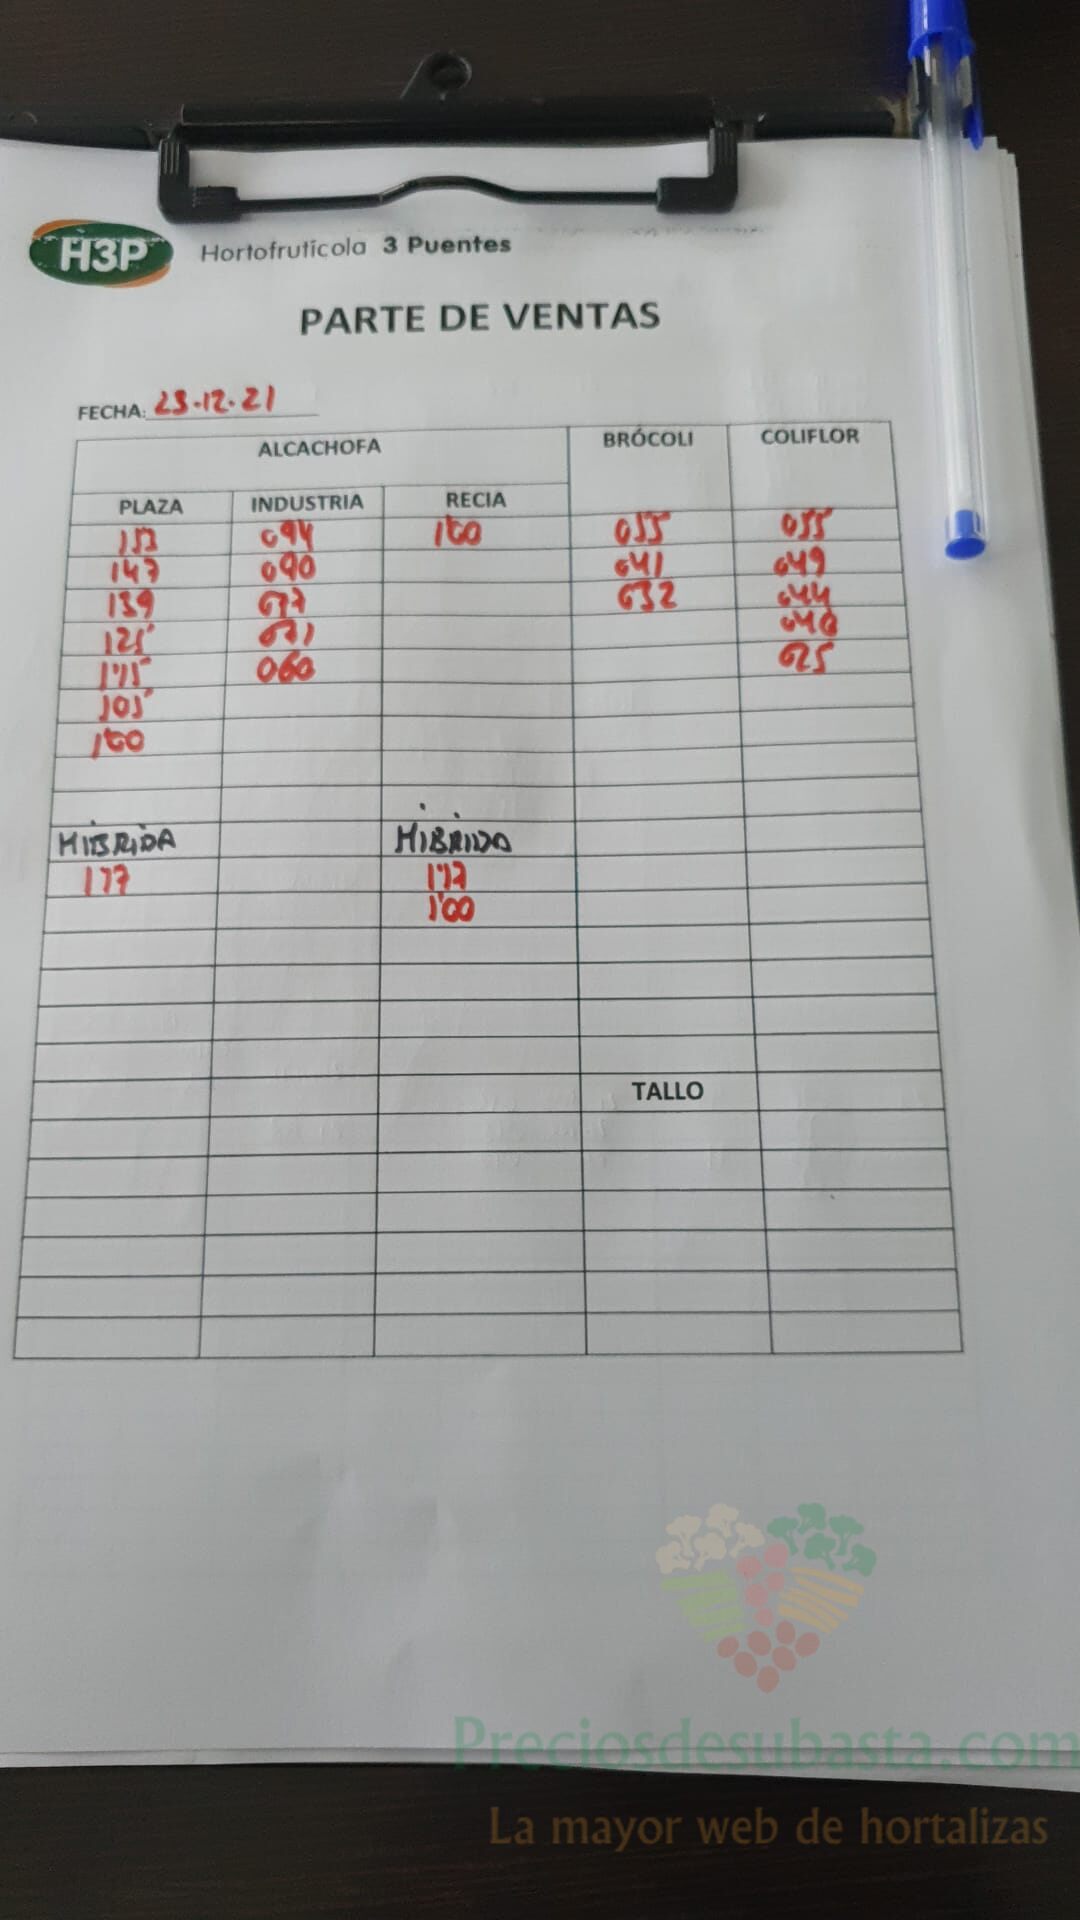 H3P Hortofrutícola 3 Puentes
PARTE DE VENTAS
FECHA: 23.12.21
ALCACHOFA BRÓCOLI COLIFLOR
PLAZA INDUSTRIA RECIA
094 100 055 055
147 090 041 049
139 077 032 044
125 071 040
1'15 060 025
105
100
HIBRIDA HIBRIDO
177
1'00
TALLO
Preciosdesubasta.com
La mayor web de hortalizas